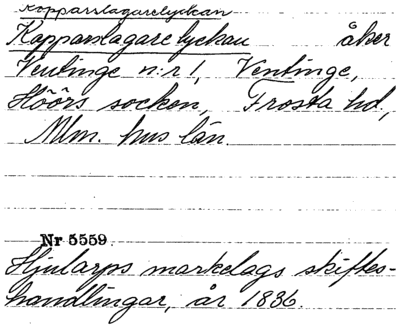 Kopparslagarelyckan
Kopparslagarelyckan åker
Ventinge n:r 1, Ventinge,
Höörs socken, Frosta hd,
Mlm. hus län.
Nr 5559
Hjularps markelags skiftes-
handlingar, år 1836.